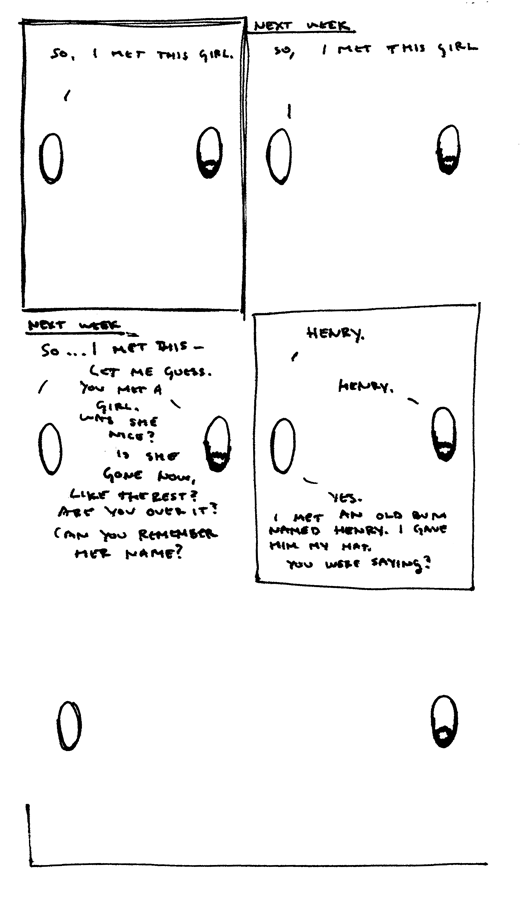 SO, I MET THIS GIRL.
NEXT WEEK
SO, I MET THIS GIRL
NEXT WEEK
SO... I MET THIS –
LET ME GUESS.
YOU MET A
GIRL.
WAS SHE
NICE?
IS SHE
GONE NOW,
LIKE THE REST?
ARE YOU OVER IT?
CAN YOU REMEMBER
HER NAME?
HENRY.
HENRY.
YES.
I MET AN OLD BUM
NAMED HENRY. I GAVE
HIM MY HAT.
YOU WERE SAYING?